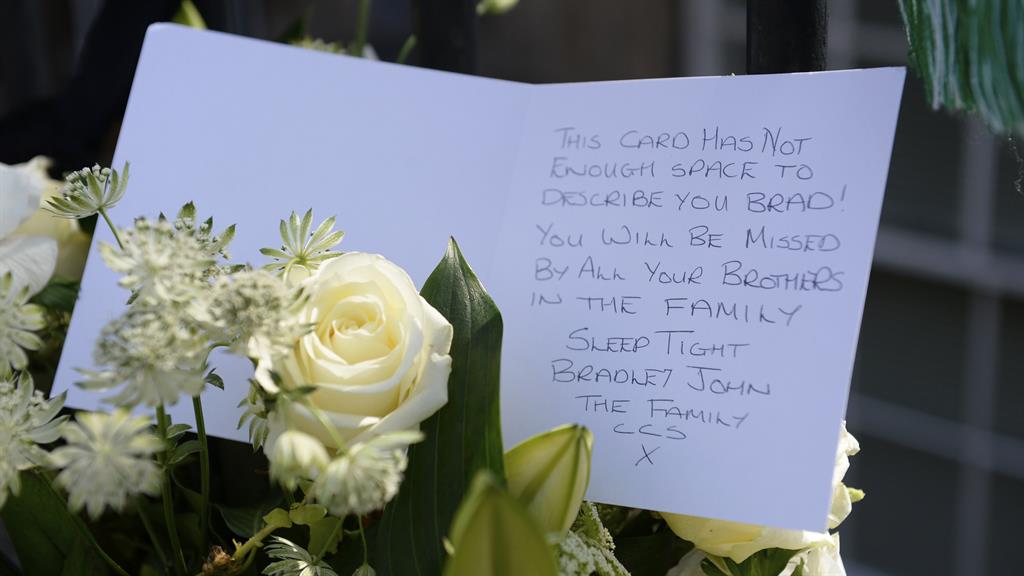 THIS CARD HAS NOT
ENOUGH SPACE TO
DESCRIBE YOU BRAD!
YOU WILL BE MISSED
BY ALL YOUR BROTHERS
IN THE FAMILY
SLEEP TIGHT
BRADLEY JOHN
THE FAMILY
CCS
X